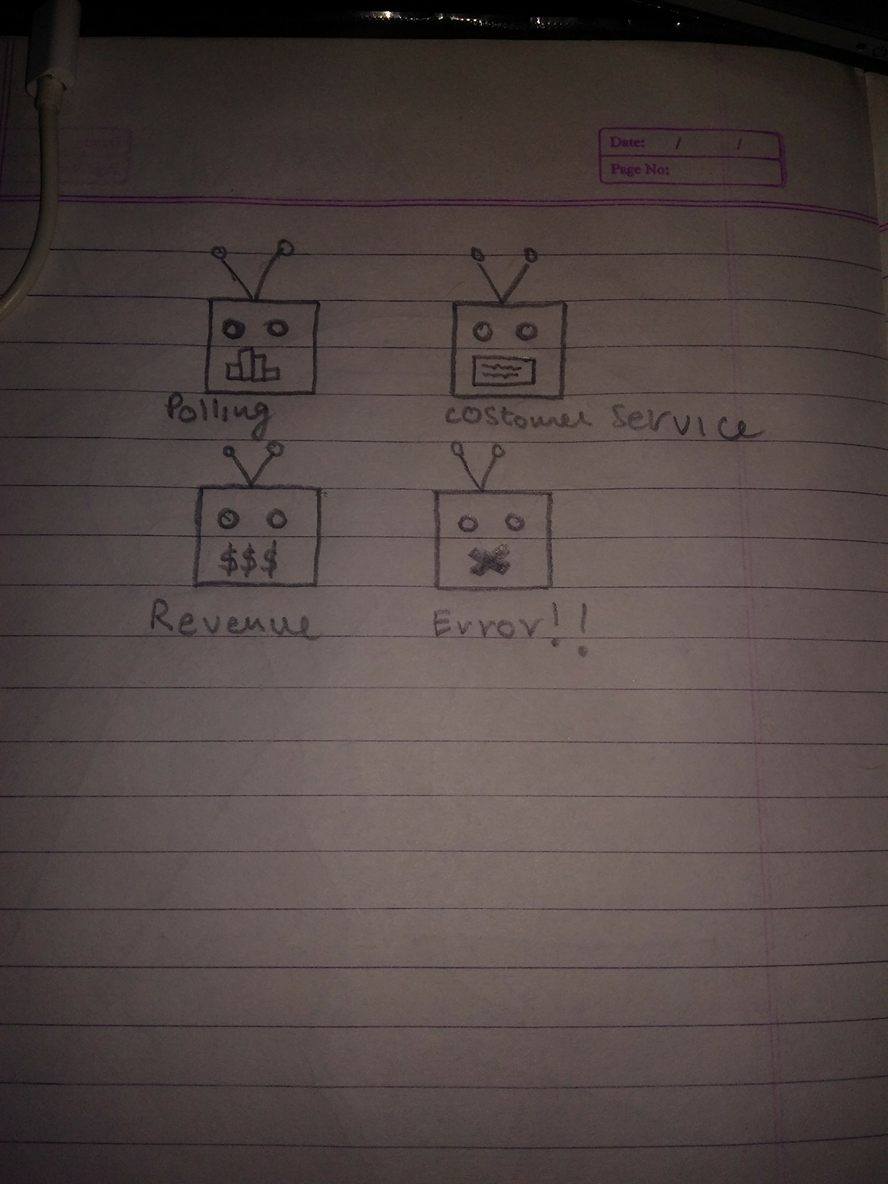 Date: / /
Page No:
Polling
costomer service
$$$
Revenue
Error!!